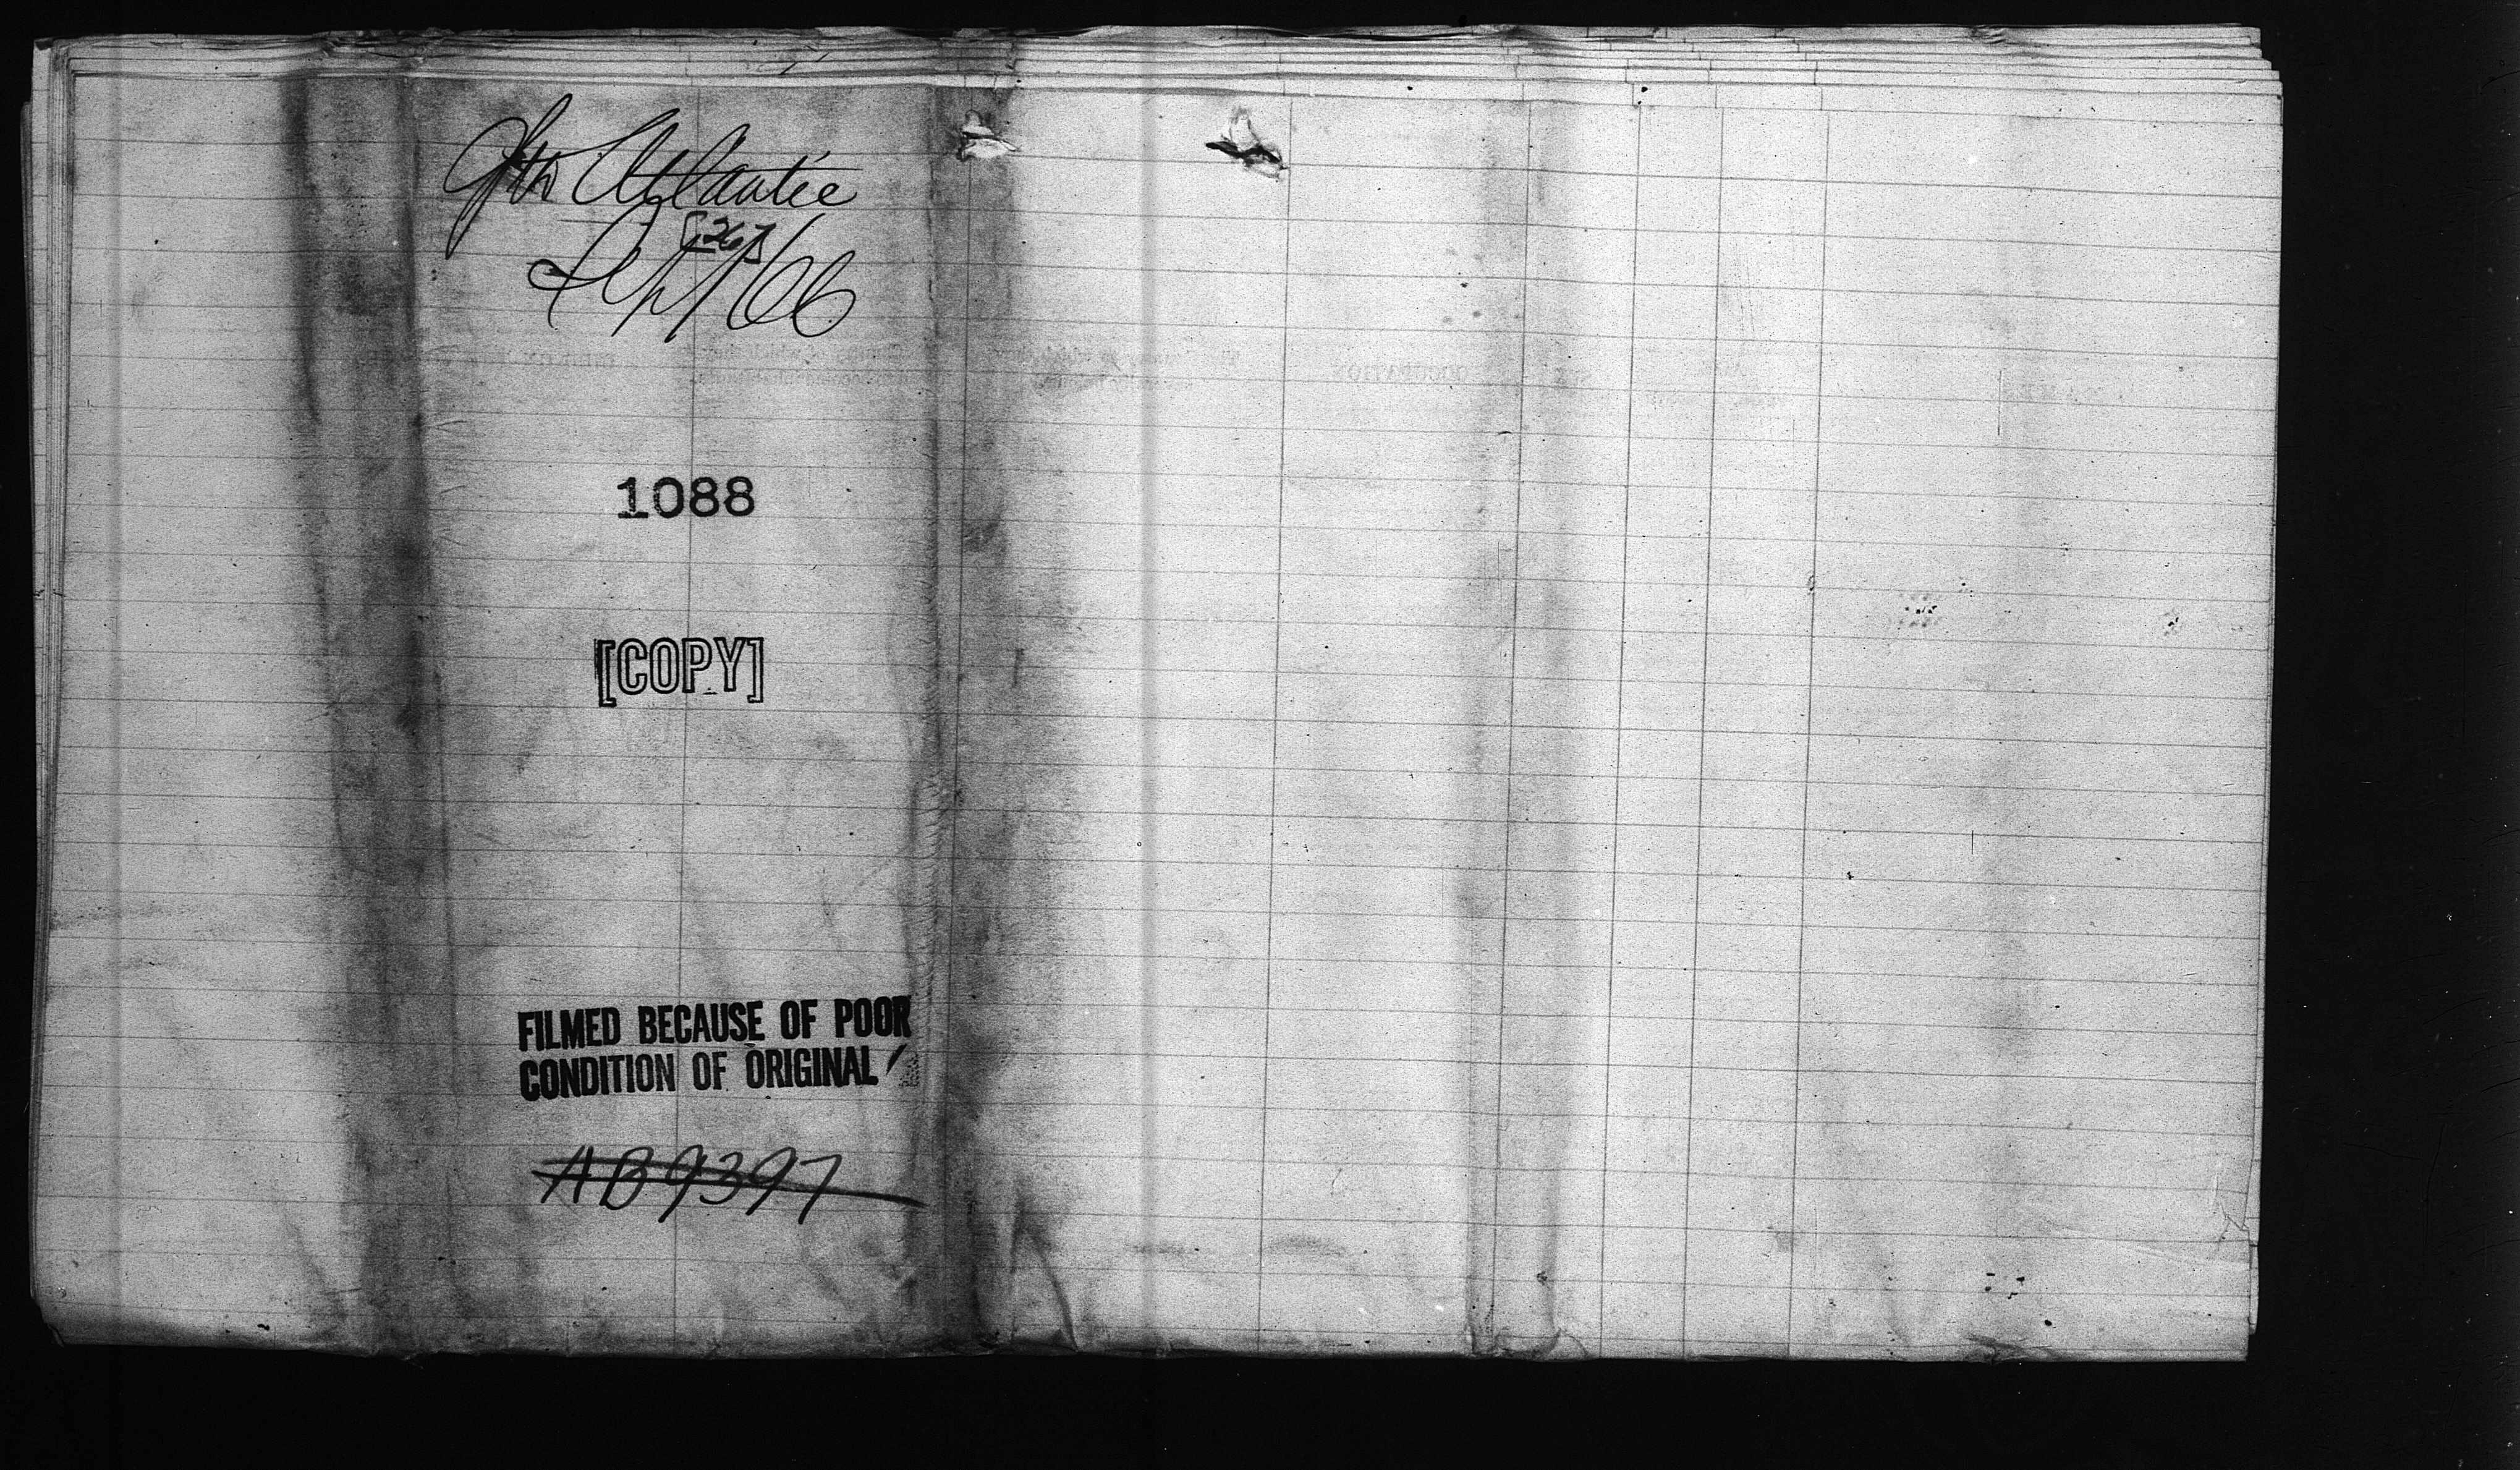 Str Atlantic
[267]
Sept 1/66
1088
[COPY]
FILMED BECAUSE OF POOR
CONDITION OF ORIGINAL
AB9397
OCCUPATION